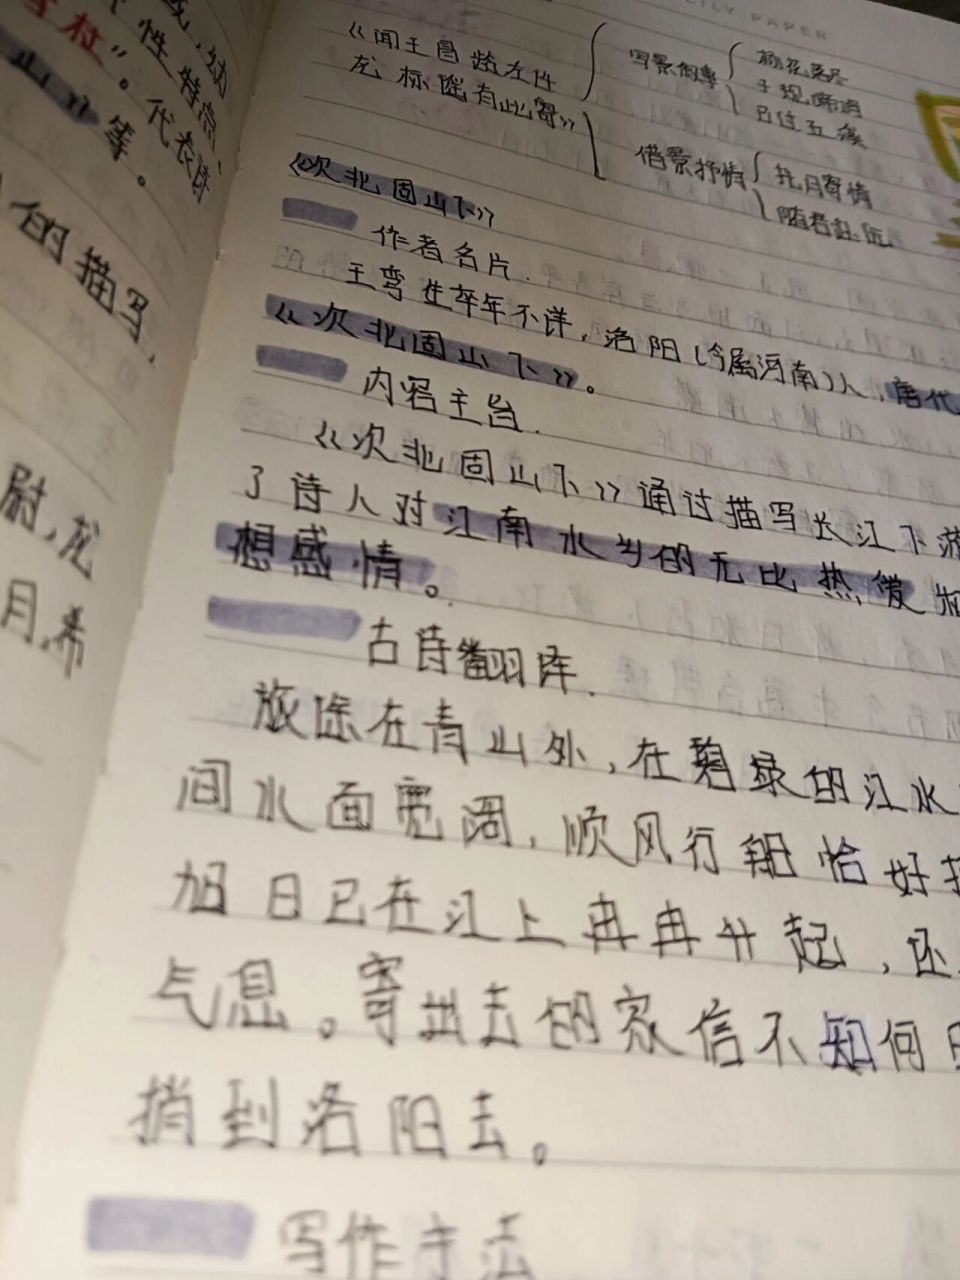 LILY PAPER
《闻王昌龄左迁
龙标遥有此寄》
写景叙事
杨花落尽
子规啼
过五溪
借景抒情
托月寄情
随君
《次北固山下》
作者名片.
王弯生卒年不详，洛阳(今属河南)人，唐代
《次北固山下》。
内容主旨.
《次北固山下》通过描写长江下游
了诗人对江南水乡的无比热爱
想感情。
古诗翻译.
旅途在青山外，在碧绿的江水
间水面宽阔，顺风行船恰好
旭日已在江上冉冉升起，还
气息。寄出去的家信不知何
捎到洛阳去。
写作手法
性特点、
村”。代表诗
山》等。
的描写，
尉，龙
月，希